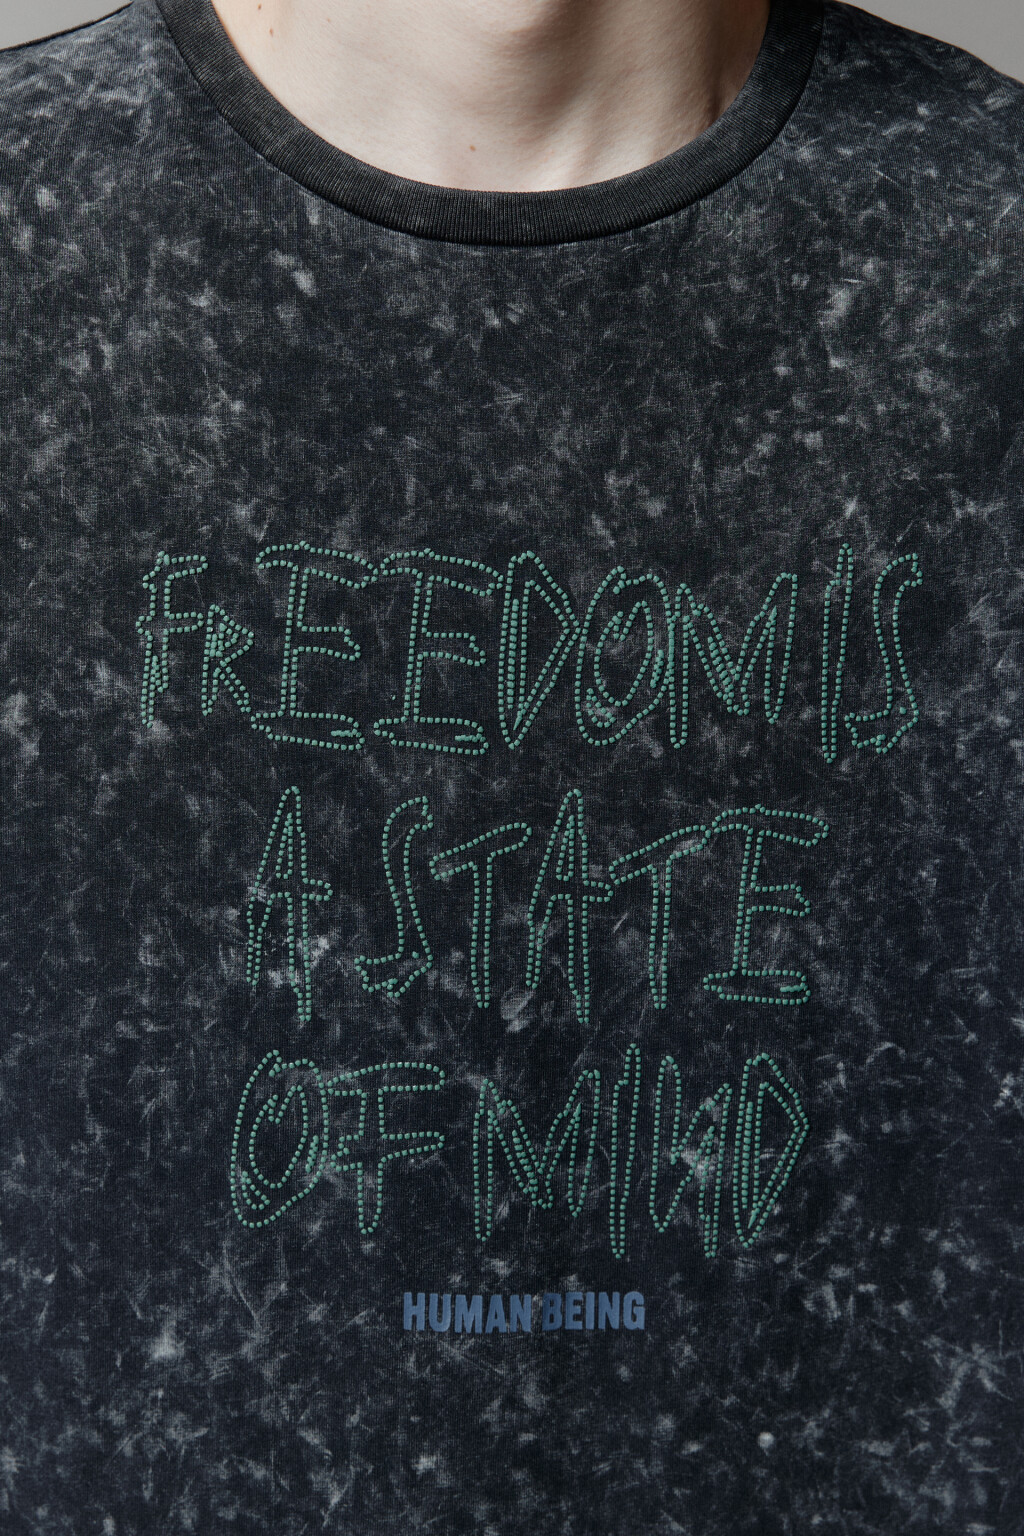 FREEDOM IS
A STATE
OF MIND
HUMAN BEING